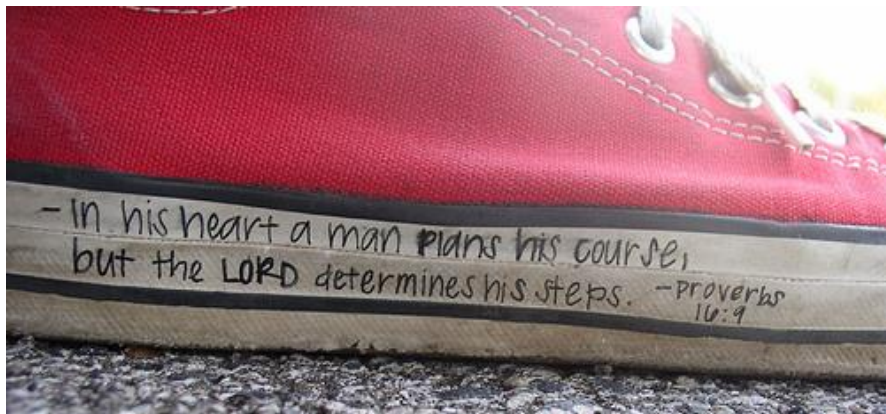 -In his heart a man plans his course,
but the LORD determines his steps. -Proverbs
16:9